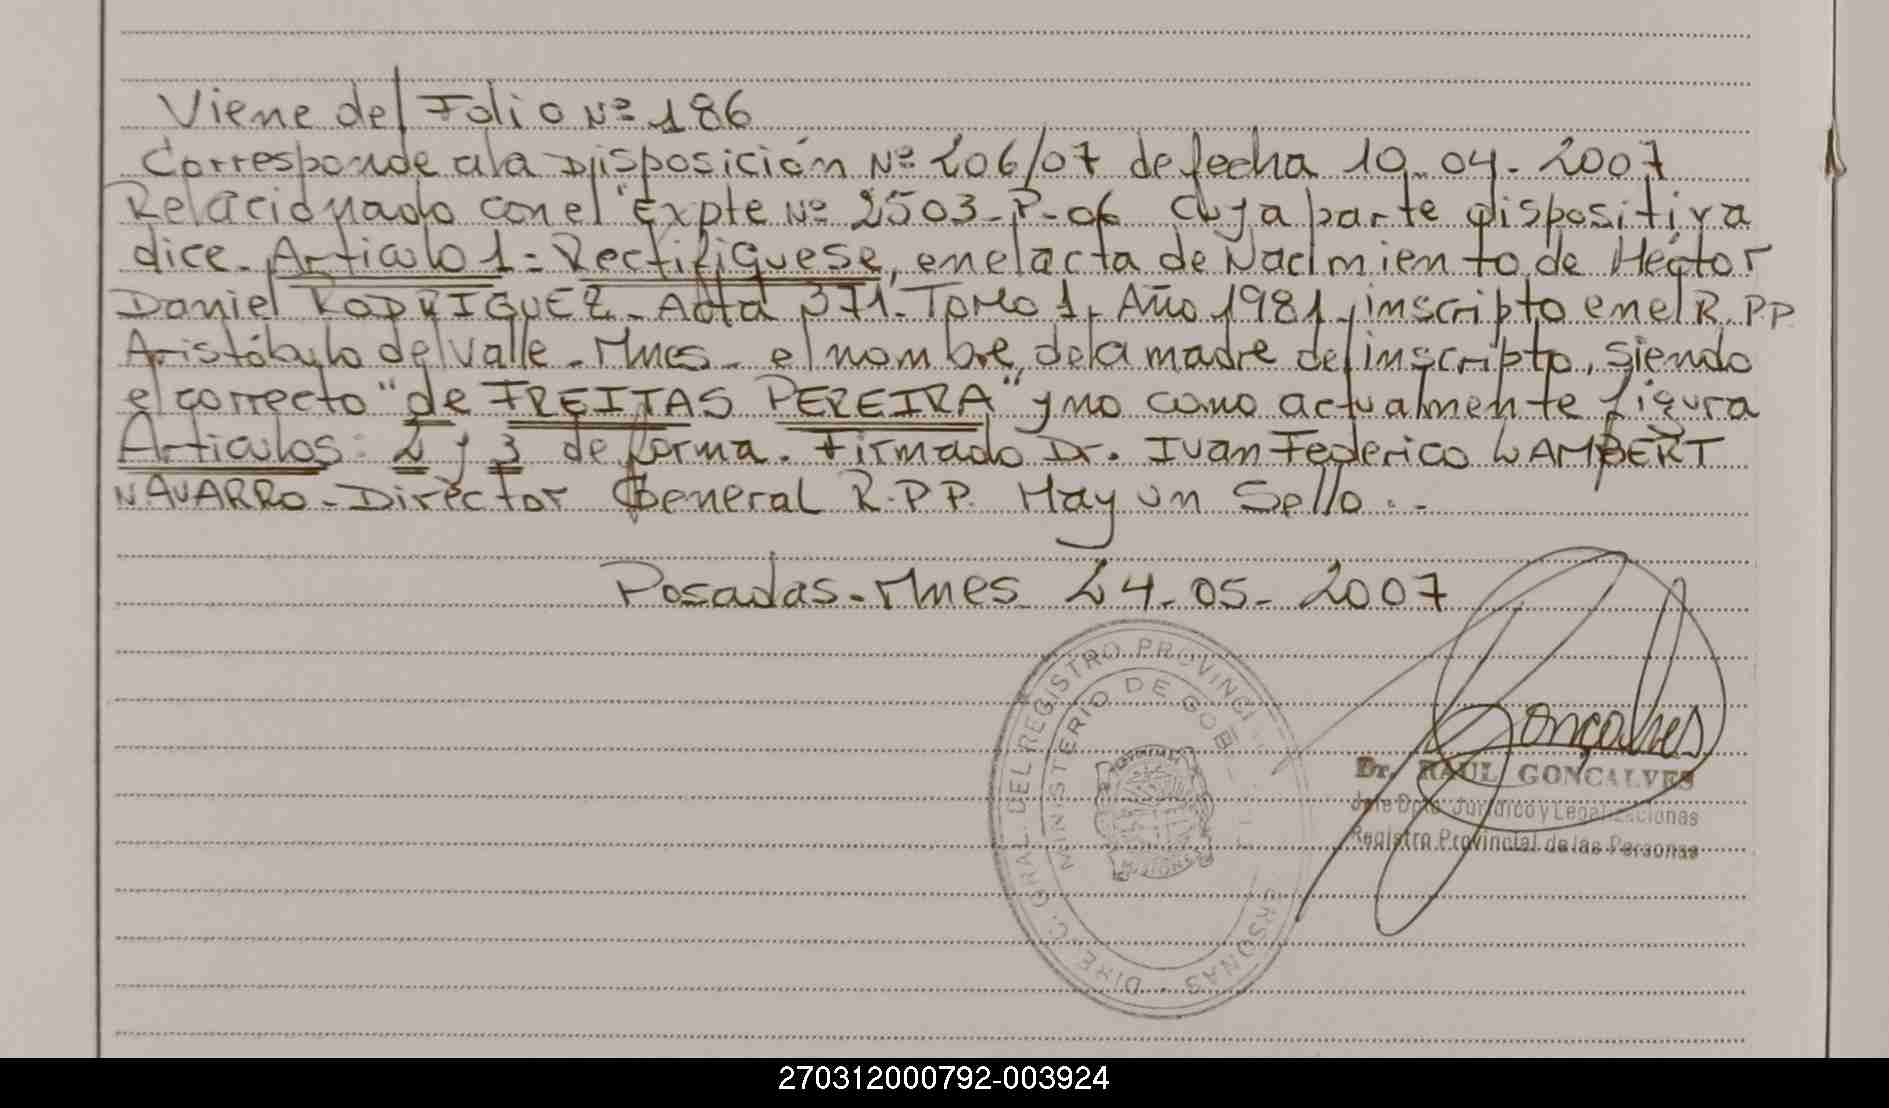 Viene del Folio Nº 186
Corresponde a la Disposición Nº 206/07 de fecha 10-04-2007
Relacionado con el Expte Nº 2503-P-06 Cuya parte dispositiva
dice. Articulo 1 = Rectifiquese, en el acta de Nacimiento de Héctor
Daniel RODRIGUEZ - Acta 371 - Tomo 1, Año 1981, inscripto en el R.PP
Aristóbulo del Valle - Mnes - el nombre de la madre del inscripto, siendo
el correcto "de FREITAS PEREIRA" y no como actualmente figura
Articulos: 2 y 3 de forma. Firmado Dr. Ivan Federico LAMBERT
NAVARRO - Director General R.P.P. Hay un Sello. -
Posadas - Mnes 24-05-2007
DIREC. GRAL. DEL REGISTRO PROVINCI ERSONAS
MINISTERIO DE GOBIE
MISIONES
Gonçalves
Dr. RAUL GONÇALVES
Jefe Dpto. Jurídico y Legalizaciones
Registro Provincial de las Personas
270312000792-003924